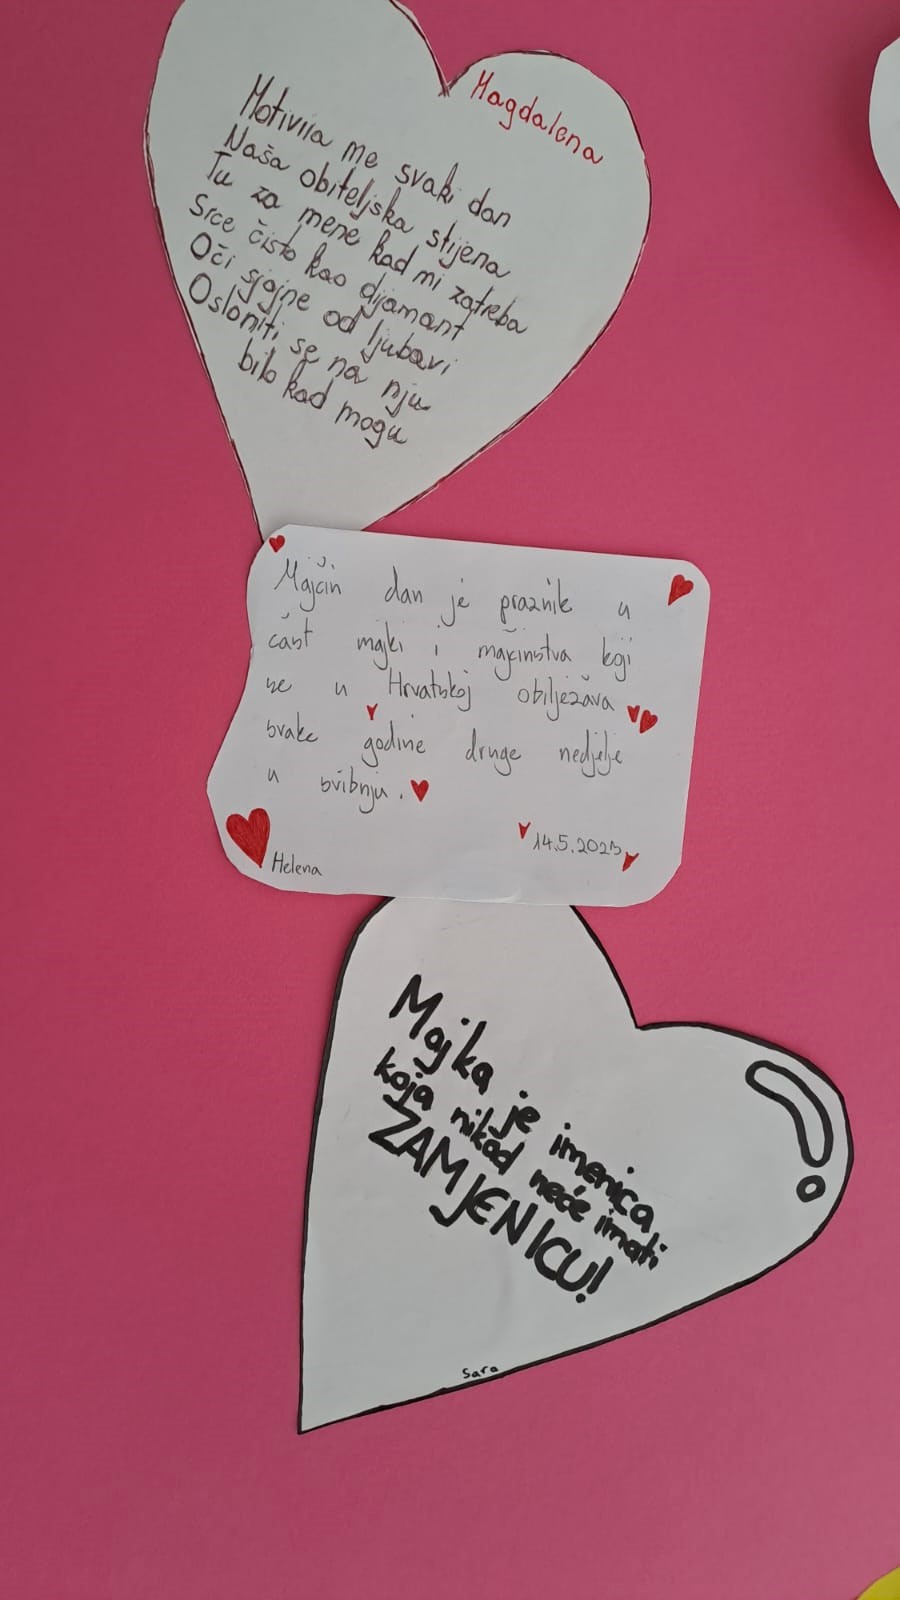 Magdalena
Motivira me svaki dan
Naša obiteljska stijena
Tu za mene kad mi zatreba
Srce čisto kao dijamant
Oči sjajne od ljubavi
Osloniti se na nju
bilo kad mogu
Majčin dan je praznik u
čast majki i majčinstva koji
se u Hrvatskoj obilježava
svake godine druge nedjelje
u svibnju.
14.5.2023
Helena
Majka je imenica
koja nikad neće imati
ZAMJENICU!
Sara